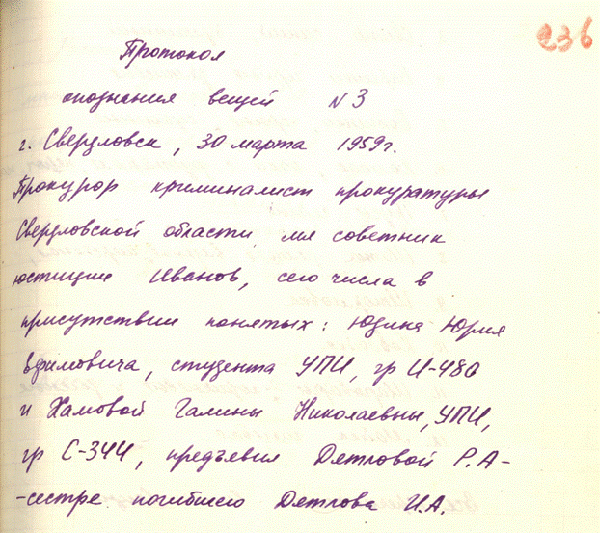 236
Протокол
опознания вещей N 3
г. Свердловск, 30 марта 1959г.
Прокурор криминалист прокуратуры
Свердловской области, мл советник
юстиции Иванов, сего числа в
присутствии понятых: Юдина Юрия
Ефимовича, студента УПИ, гр И-480
и Хамовой Галины Николаевны, УПИ,
гр С-344, предъявил Дятловой Р.А-
-сестре погибшего Дятлова И.А.